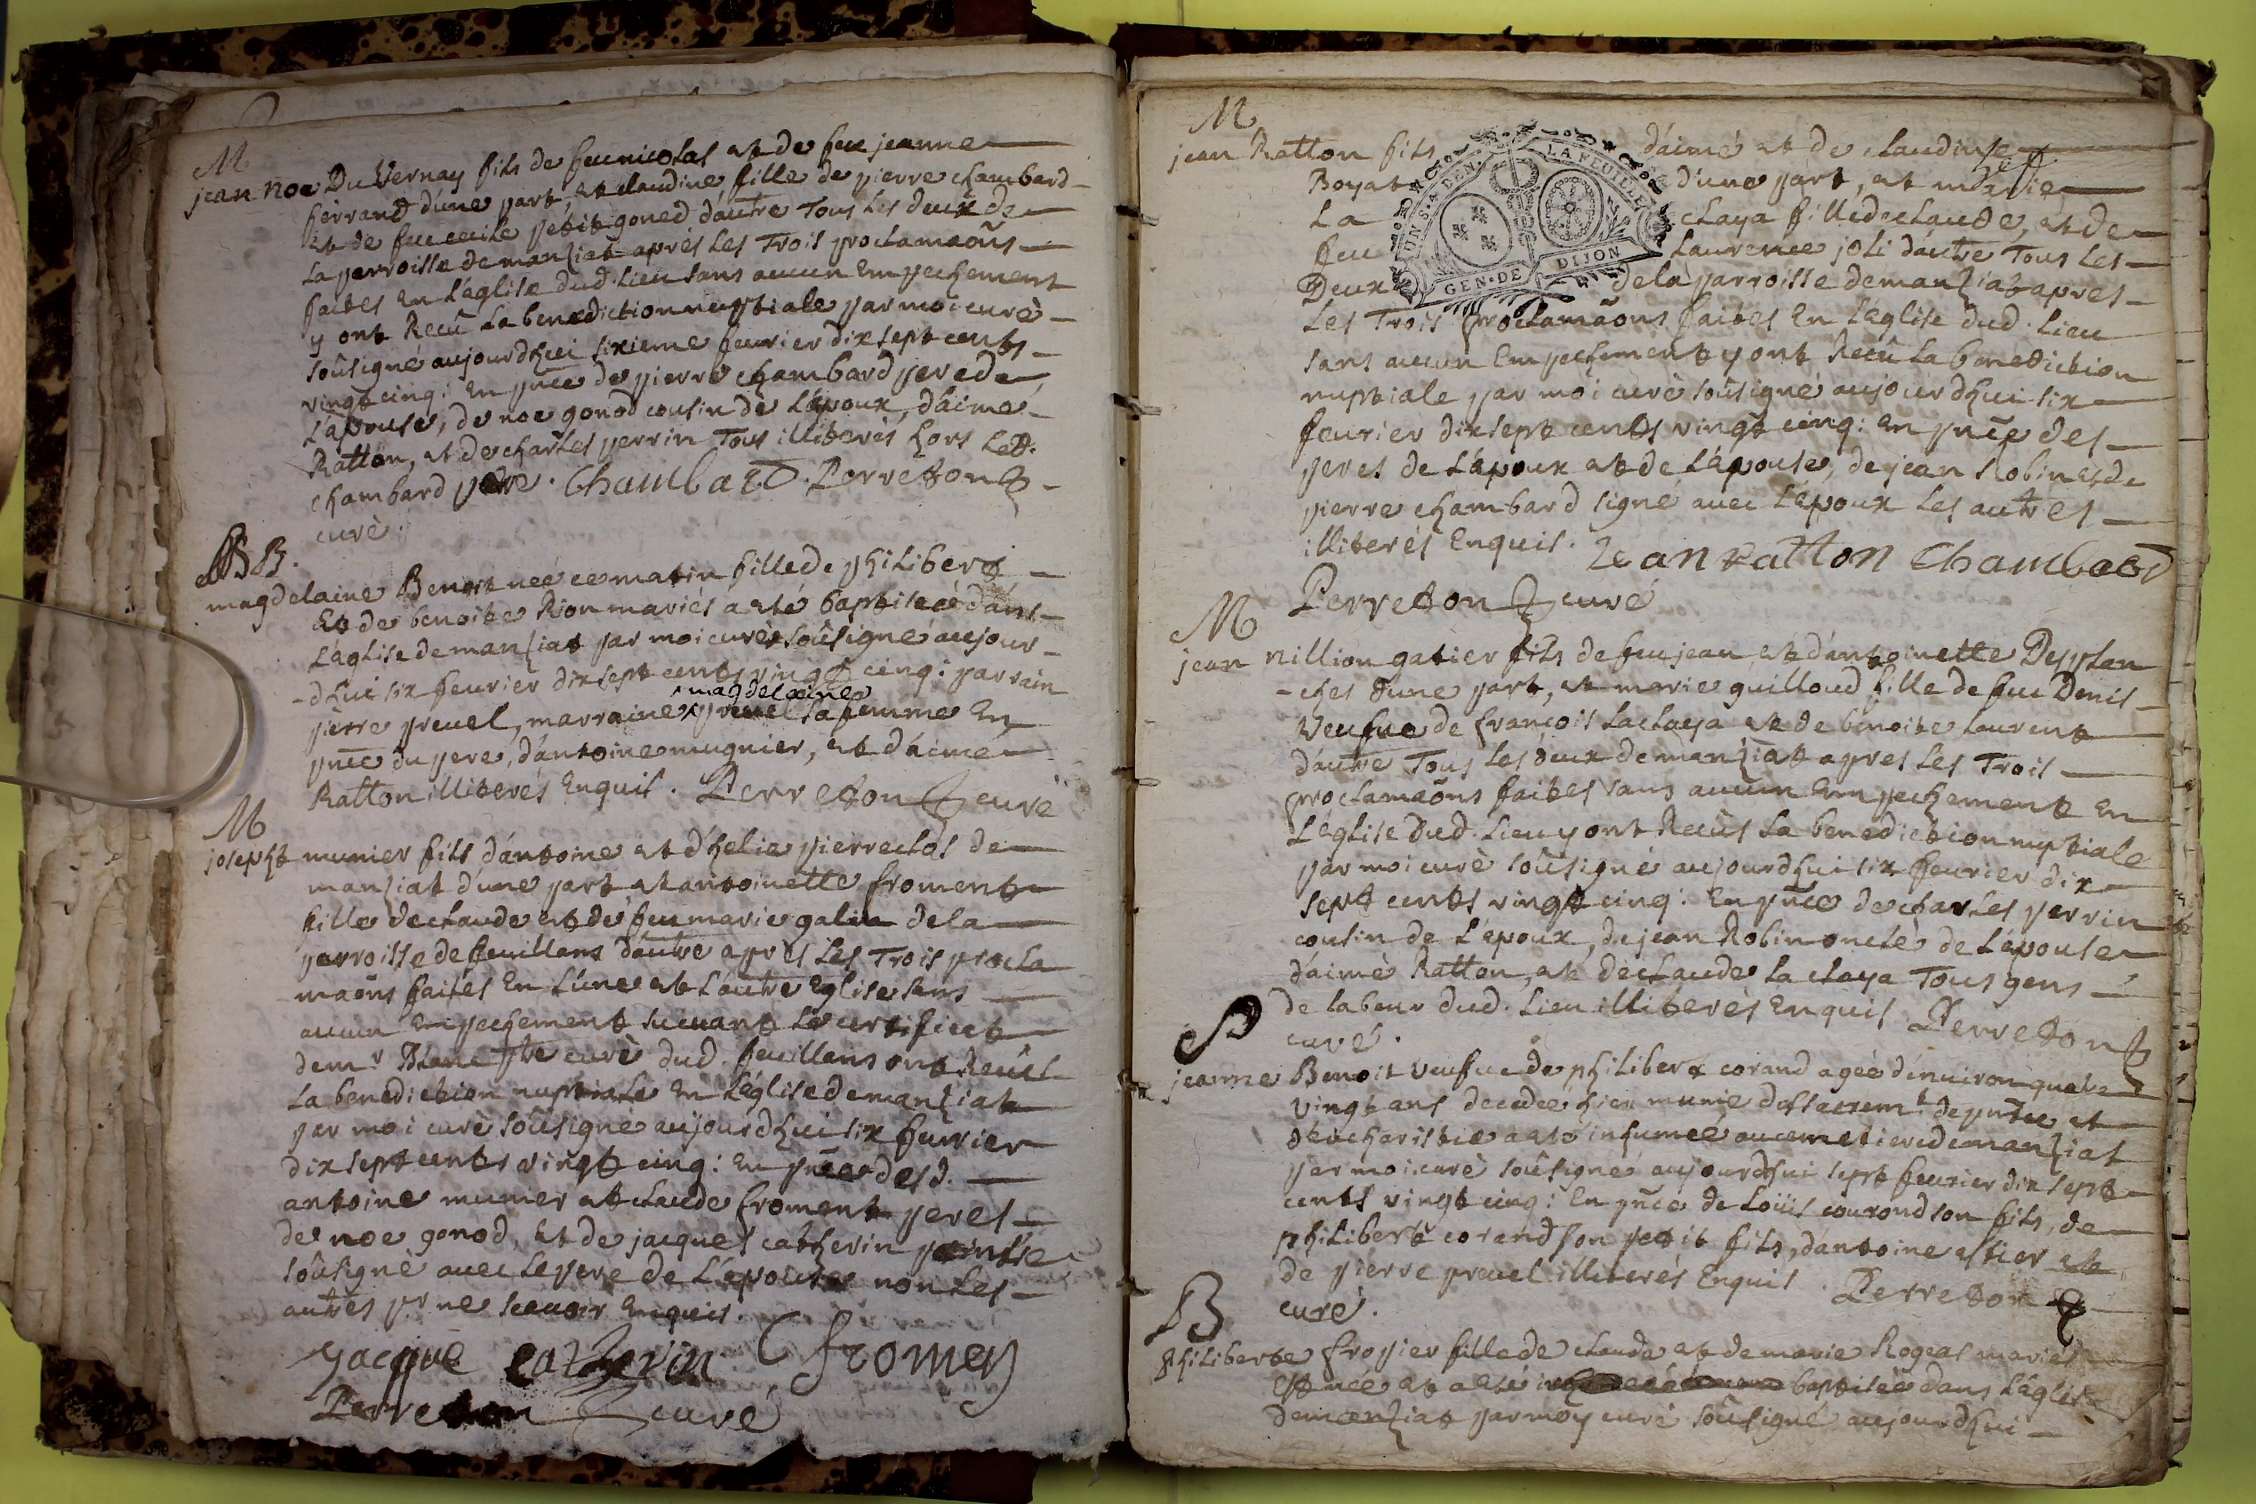 M
jean noe Du Vernay fils de feu nicolas et de feu jeanne
ferrand d'une part, et claudine fille de pierre chambard
et de feu cecile petit goned d'autre Tous Les deux de
La parroisse de manziat aprés Les Trois proclamaõns
faites En L'eglise dud. Lieu sans aucun Empechement
y ont Recû La benediction nuptiale par moi curé
soûsigné aujourdhui sixieme feurier dix sept cents
vingt cinq: En pñce de pierre chambard pere de
L'epouse, de noe gonod cousin de L'epoux, d'aimé
Ratton, et de charles perrin Tous illiterés hors Led.
chambard pere. Chambard. Perreton
curé.
B B.
magdelaine Benoit neé ce matin fille de philibert
Et de benoite Rion mariés a eté baptiseé dans
L'eglise de manziat par moi curé soûsigné aujour-
-dhui six feurier dix sept cents vingt cinq: parrain
magdelaine
pierre preuel, marraine preuel sa femme En
pñce du pere, d'antoine mugnier, et d'aimé
Ratton illiterés Enquis. Perreton curé
M
josepht munier fils d'antoine et d'helie pierreclos de
manziat d'une part et antoinette froment
fille de claude et de feu marie galin de la
parroisse de feuillens d'autre aprés Les Trois procla
maõns faites En L'une et L'autre Eglise sans
aucun Empechement suiuant Le certificat
de mr Blanc ptre curé dud. feuillens ont Recûs
La benediction nuptiale En L'eglise de manziat
par moi curé soûsigné aujourdhui six feurier
dix sept cents vingt cinq: En pñce desd.
antoine munier et claude froment peres
de noe gonod, et de jacques catherin
soûsigné auec Le pere de L'epouse non Les
autres pr ne scauoir Enquis.
jacque catherin C fromen
Perreton curé
M
jean Ratton fils d'aimé et de claudine
Boyat d'une part, et marie
La claya fille de claude, et de
feu Laurence joli d'autre Tous Les
Deux de la parroisse de manziat apres
GEN·DE DIJON
LA FEUILLE
Les Trois proclamaõns faites En L'eglise dud. Lieu
sans aucun Empechement y ont Recû La benediction
nuptiale par moi curé soûsigné aujourdhui six
feurier dix sept cents vingt cinq: En pñce des
peres de L'epoux et de L'epouse, de jean Robin et de
pierre chambard signé auec L'epoux Les autres
illiterés Enquis. Jean Ratton Chambard
Perreton curé
M
jean nillion gatier fils de feu jean et d'antoinette Desplan
-ches d'une part, et marie guilloud fille de feu Denis
Veufue de françois La claya et de benoite Laurent
d'autre Tous Les deux de manziat apres Les Trois
proclamaõns faites sans aucun Empechement En
L'eglise Dud. Lieu y ont Recûs La benediction nuptiale
par moi curé soûsigné aujourdhui six feurier dix
sept cents vingt cinq: En pñce de charles perrin
cousin de L'epoux, de jean Robin oncle de L'epouse
d'aimé Ratton, et de claude La claya Tous gens
de labeur dud. Lieu illiterés Enquis Perreton
curé.
S
jeanne Benoit veufue de philibert corand ageé d'enuiron quatre
vingt ans decedeé hier munie des sacremt de pñtce et
d'eucharistie a eté inhumeé au cemetiere de manziat
par moi curé soûsigné aujourdhui sept feurier dix sept
cents vingt cinq: En pñce de Loüis courand son fils, de
philibert corand son petit fils, d'antoine et
de pierre preuel illiterés Enquis. Perreton
curé.
B
philiberte fropier fille de claude et de marie Rogeas mariés
Est neé et a eté baptiseé dans L'eglise
de manziat par moy curé soûsigné aujourdhui